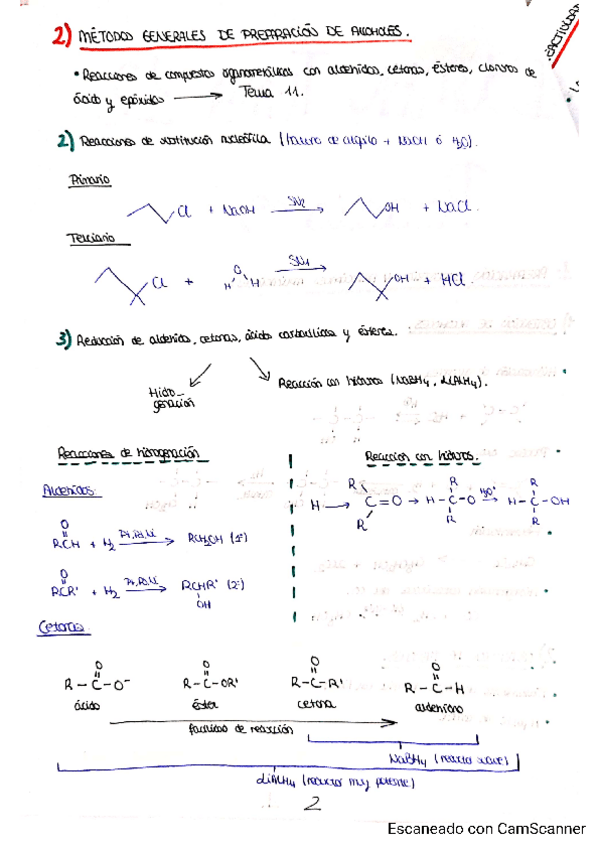 2) MÉTODOS GENERALES DE PREPARACIÓN DE ALCOHOLES.
• Reacciones de compuestos organometálicos con aldehídos, cetonas, ésteres, cloruros de
ácido y epóxidos → Tema 11.
2) Reacciones de sustitución nucleófila (haluro de alquilo + NaOH ó H₂O).
Primario
Cl + NaOH SN2 → OH + NaCl.
Terciario
Cl + H O H SN1 → OH + HCl.
3) Reducción de aldehídos, cetonas, ácidos carboxílicos y ésteres.
Hidro-
genación
Reacción con hidruros (NaBH4, LiAlH4).
Reacciones de hidrogenación
Aldehidos:
O
RCH + H₂ Pt, Pd, Ni → RCH₂OH (1º)
O
RCR' + H₂ Pt, Pd, Ni → RCHR' (2º)
OH
Cetonas
Reacción con hidruros.
R R R
H → C=O → H-C-O H₃O⁺ → H-C-OH
R R R
O O O O
R-C-O⁻ R-C-OR' R-C-R' R-C-H
ácido éster cetona aldehído
facilidad de reacción
NaBH4 (reactivo suave)
LiAlH4 (reactivo muy potente)
2
Escaneado con CamScanner